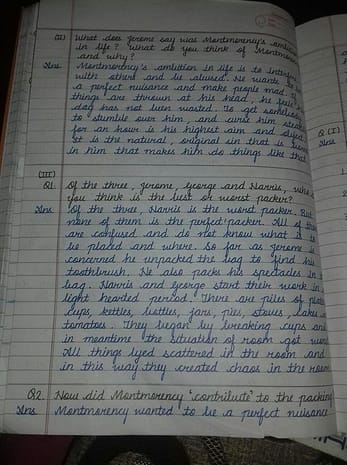 (II) What does Jerome say was Montmorency's ambition
in life? What do you think of Montmorency
and why?
Ans Montmorency's ambition in life is to interfere
with others and be abused. He wants to
a perfect nuisance and make people mad. If
things are thrown at his head, he feels his
day has not been wasted. To get somebody
to stumble over him, and curse him
for an hour is his highest aim and object.
It is the natural, original sin that is
in him that makes him do things like that.
(III)
Q1. Of the three, Jerome, George and Harris, who do
you think is the best or worst packer?
Ans Of the three, Harris is the worst packer. But
none of them is the perfect packer. All of them
are confused and do not know what is to
be placed and where. So far as Jerome is
concerned he unpacked the bag to find his
toothbrush. He also packs his spectacles in
bag. Harris and George start their work in
light hearted period. There are piles of plates
cups, kettles, bottles, jars, pies, stoves, cakes
tomatoes. They began by breaking cups and
in meantime the situation of room got
All things lyed scattered in the room and
in this way they created chaos in the room
Q2. How did Montmorency 'contribute' to the packing
Ans Montmorency wanted to be a perfect nuisance
Q (I)